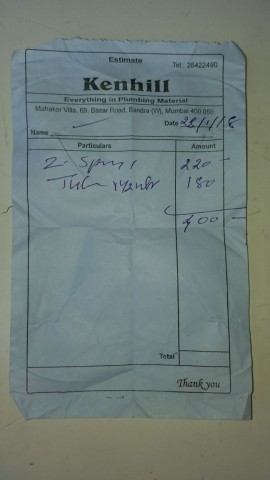 Estimate
Tel: 26422490
Kenhill
Everything in Plumbing Material
Mahakoi Villa, 69, Bazar Road, Bandra (W), Mumbai-400 050.
Date 28/1/18
Name
Particulars Amount
2 220
180
400
Total
Thank you